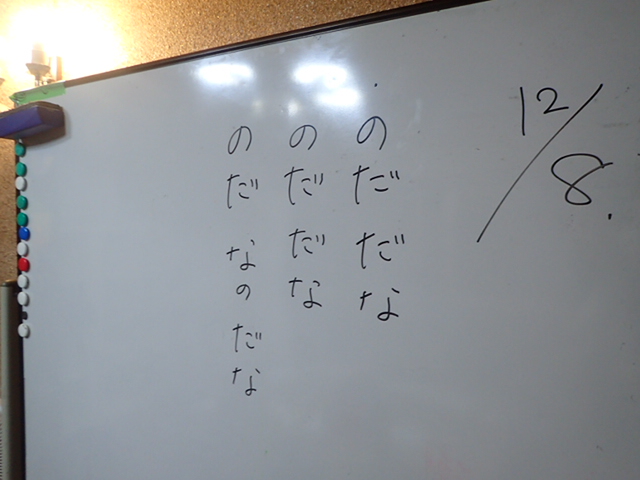 12/8.
のだだな
のだだな
のだなのだな